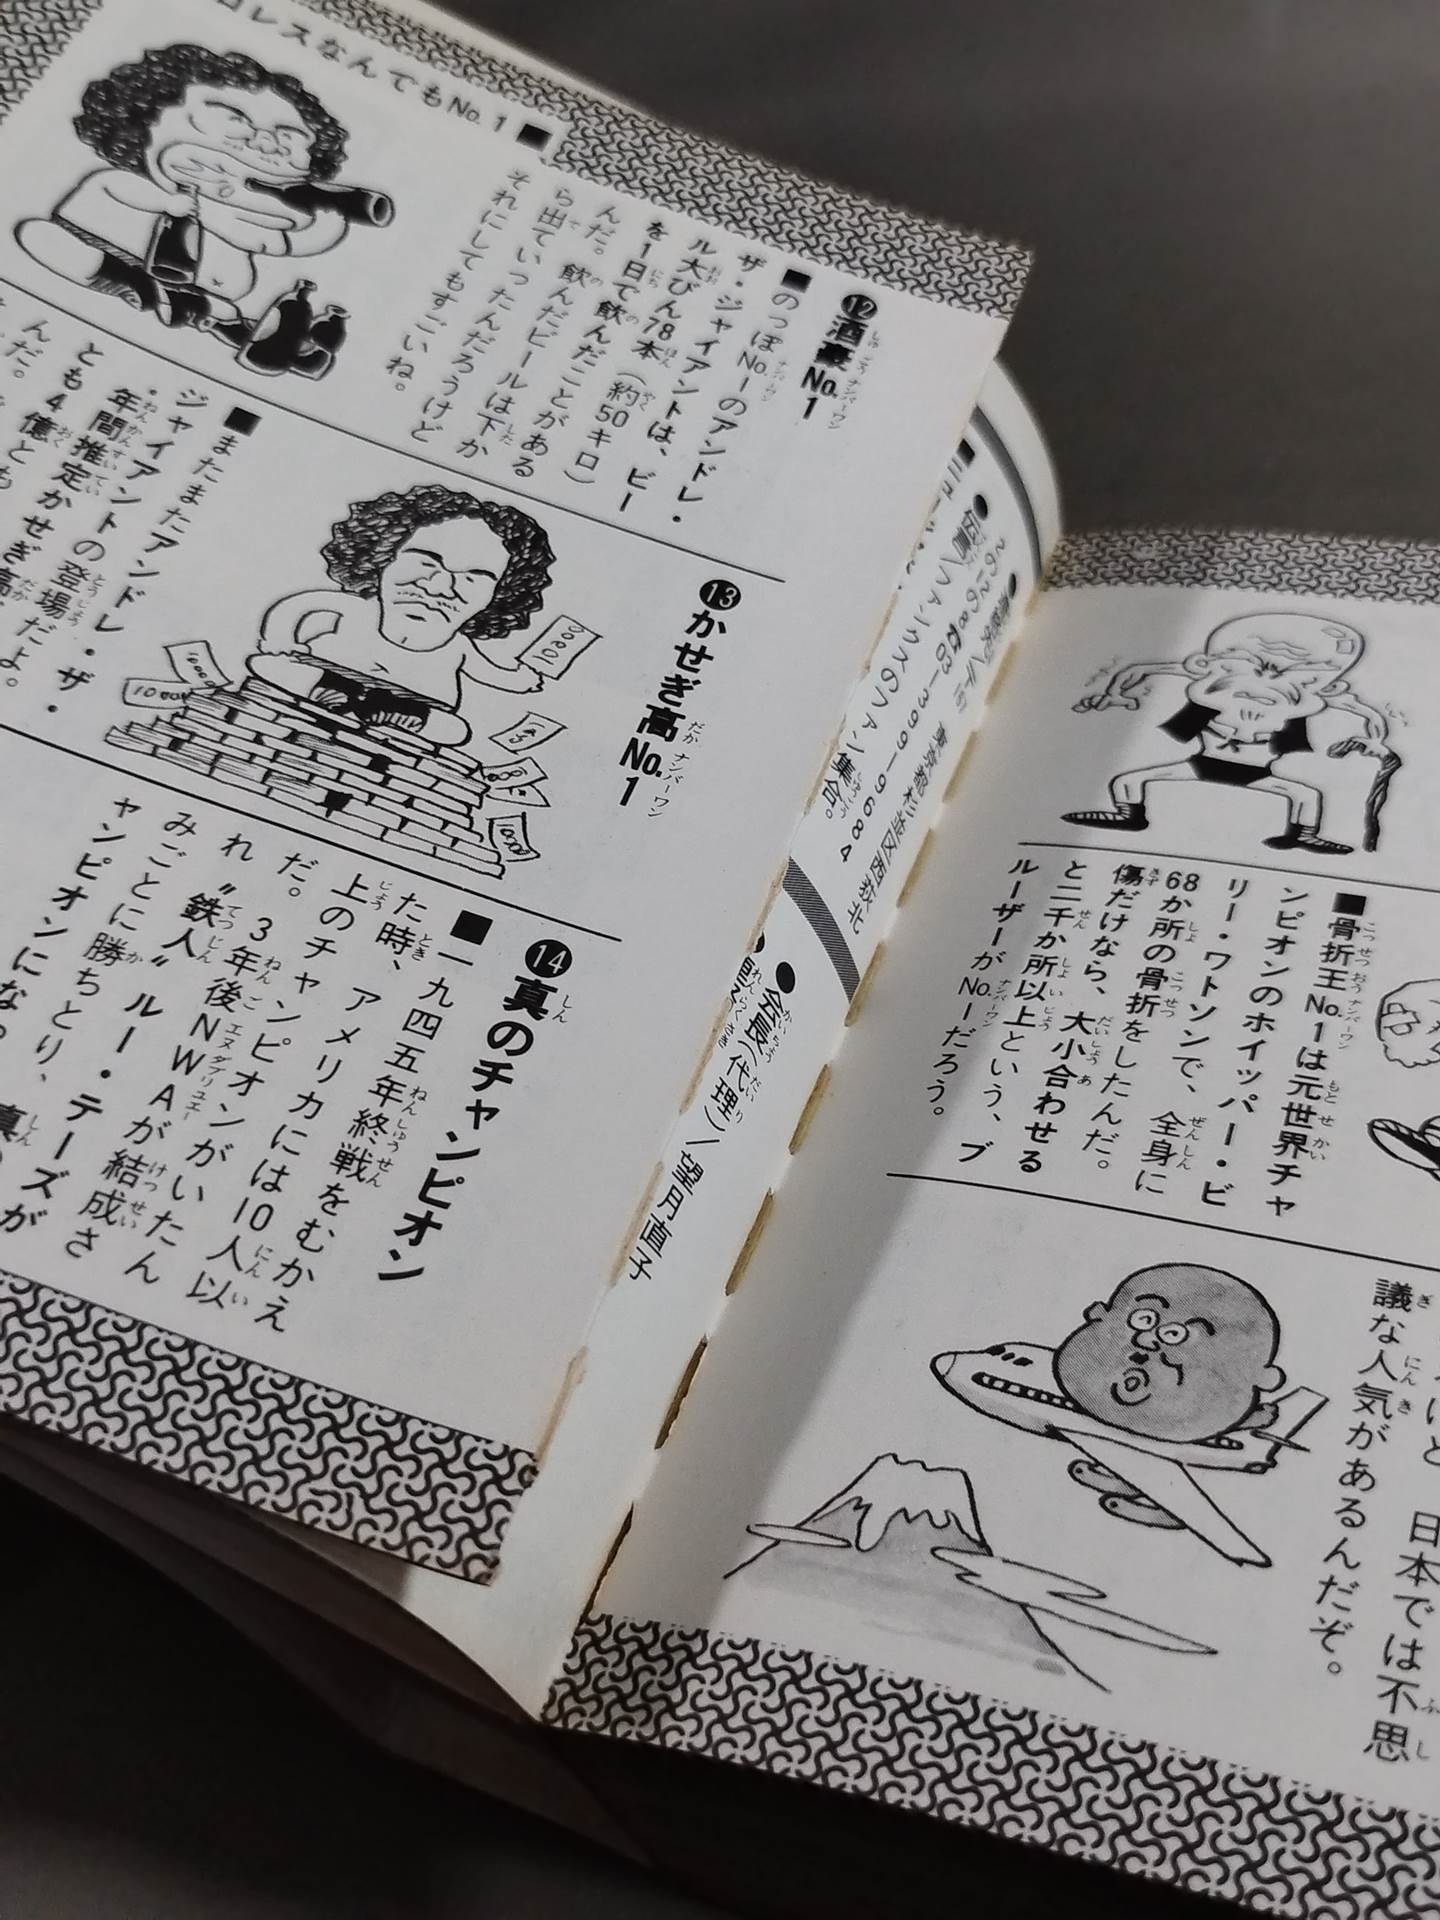 ロレスなんでもNo.1■
⑫酒豪No.1
■のっぽNo.1のアンドレ・
ザ・ジャイアントは、ビー
ル大びん78本(約50キロ)
を1日で飲んだことがある
んだ。飲んだビールは下か
ら出ていったんだろうけど
それにしてもすごいね。
⑬かせぎ高No.1
■またまたアンドレ・ザ・
ジャイアントの登場だよ。
年間推定かせぎ高
とも4億とも
んだ。
⑭真のチャンピオン
■一九四五年終戦をむかえ
た時、アメリカには10人以
上のチャンピオンがいたん
だ。3年後NWAが結成さ
れ〝鉄人〟ルー・テーズが
みごとに勝ちとり、真
ャンピオンにな
ファン集合。
●会長(代理)/望月直子
■骨折王No.1は元世界チャ
ンピオンのホイッパー・ビ
リー・ワトソンで、全身に
68か所の骨折をしたんだ。
傷だけなら、大小合わせる
と二千か所以上という、ブ
ルーザーがNo.1だろう。
けど、日本では不思
議な人気があるんだぞ。